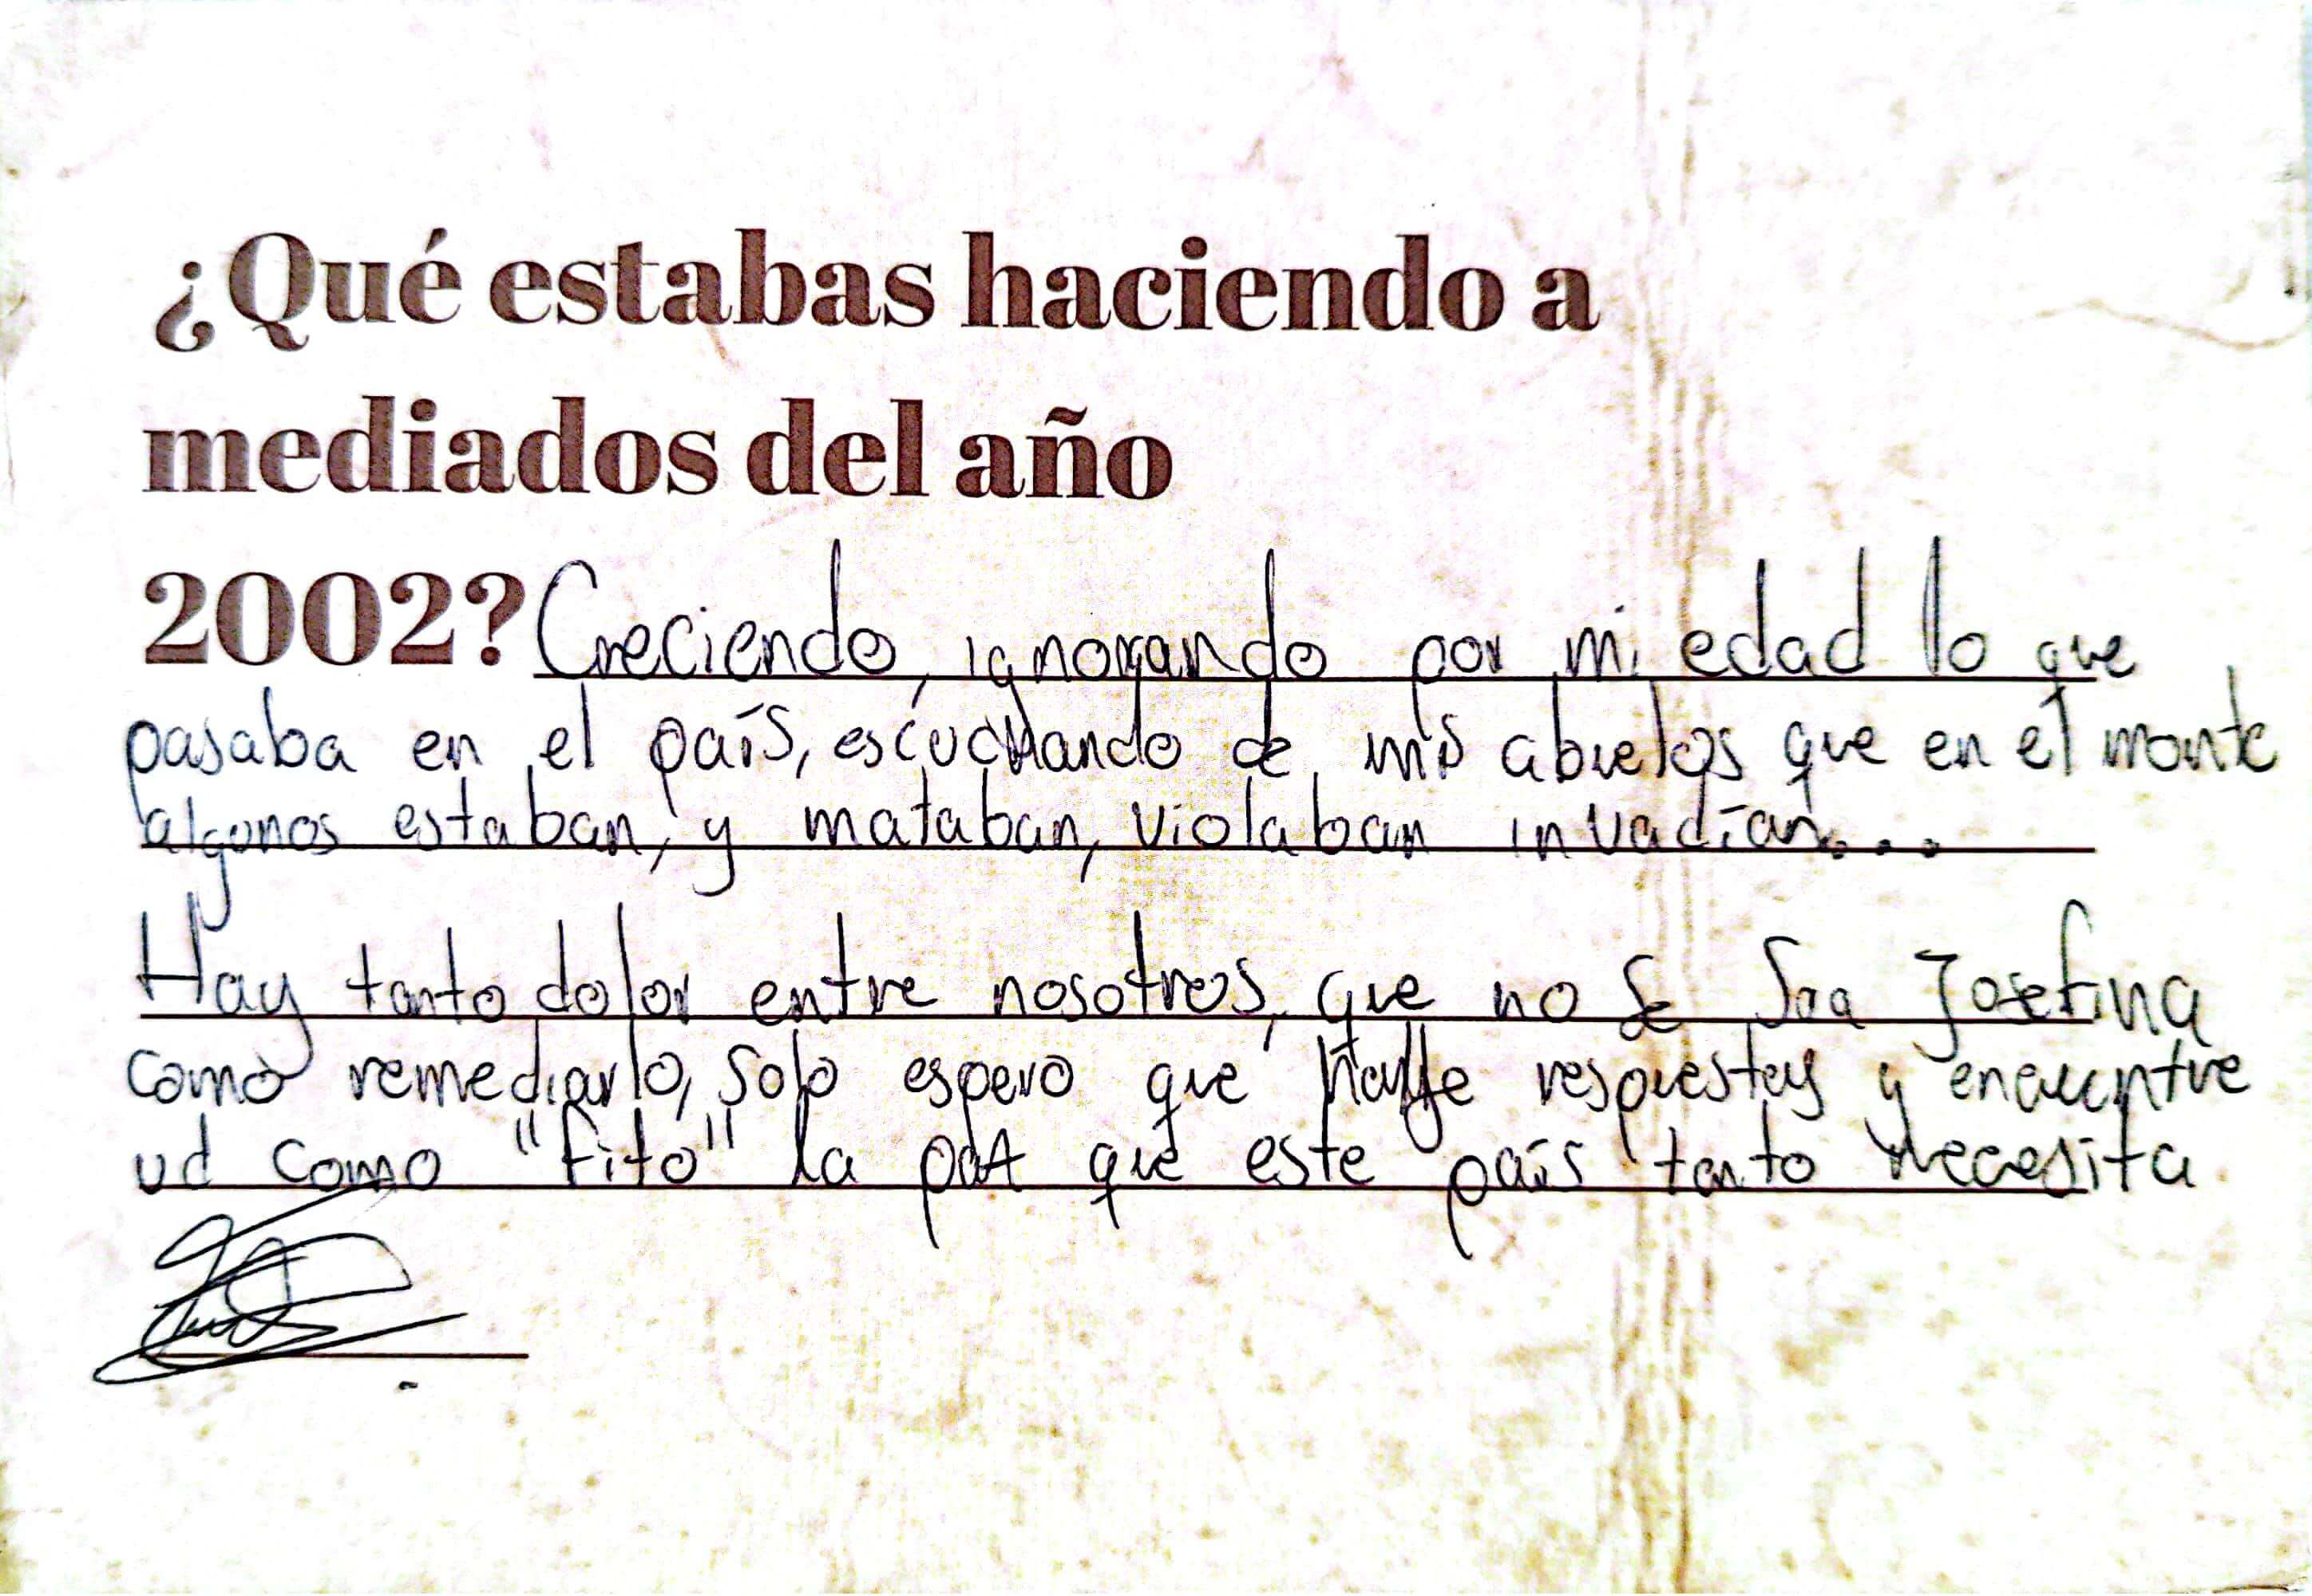 ¿Qué estabas haciendo a
mediados del año
2002? Creciendo, ignorando por mi edad lo que
pasaba en el país, escuchando de mis abuelos que en el monte
algunos estaban, y mataban, violaban invadían...
Hay tanto dolor entre nosotros, que no se Sra Josefina
como remediarlo, solo espero que halle respuestas y encuentre
ud como "Fito" la paz que este país tanto necesita.